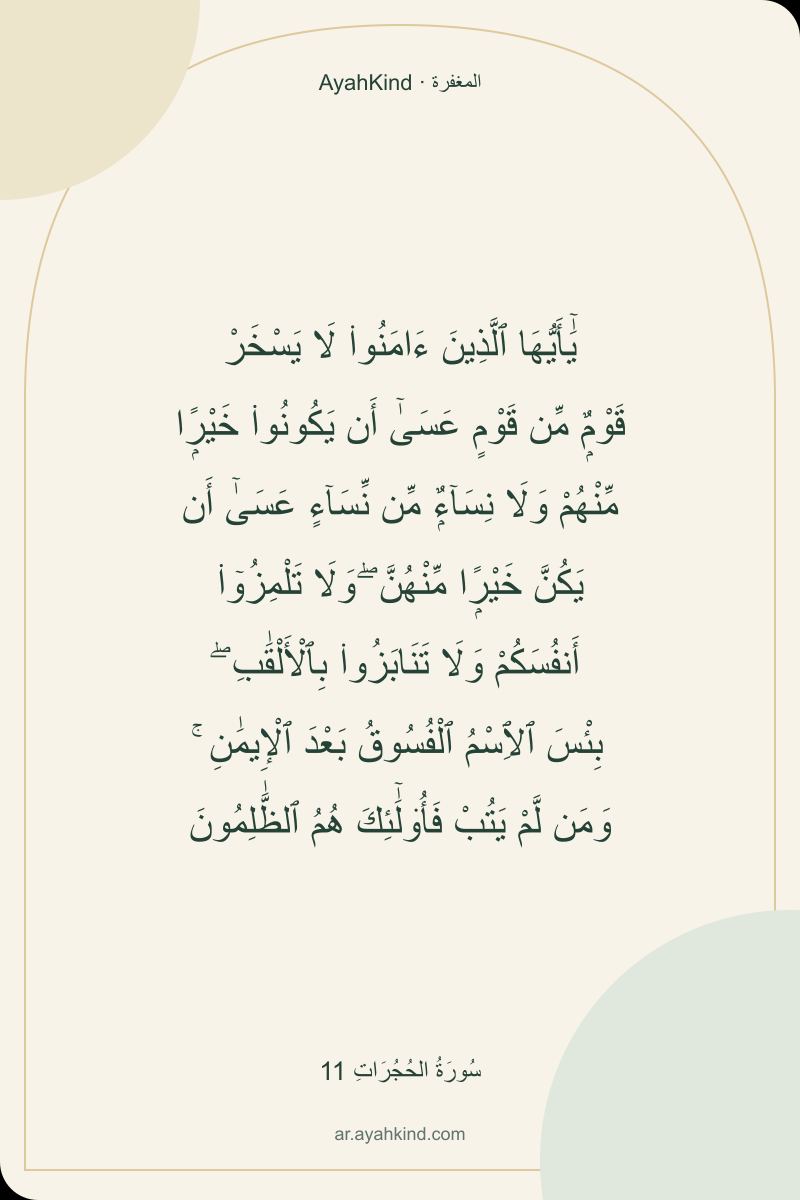 AyahKind · المغفرة
يَٰٓأَيُّهَا ٱلَّذِينَ ءَامَنُوا۟ لَا يَسْخَرْ
قَوْمٌۭ مِّن قَوْمٍ عَسَىٰٓ أَن يَكُونُوا۟ خَيْرًۭا
مِّنْهُمْ وَلَا نِسَآءٌۭ مِّن نِّسَآءٍ عَسَىٰٓ أَن
يَكُنَّ خَيْرًۭا مِّنْهُنَّ ۖ وَلَا تَلْمِزُوٓا۟
أَنفُسَكُمْ وَلَا تَنَابَزُوا۟ بِٱلْأَلْقَٰبِ ۖ
بِئْسَ ٱلِٱسْمُ ٱلْفُسُوقُ بَعْدَ ٱلْإِيمَٰنِ ۚ
وَمَن لَّمْ يَتُبْ فَأُو۟لَٰٓئِكَ هُمُ ٱلظَّٰلِمُونَ
سُورَةُ الحُجُرَاتِ 11
ar.ayahkind.com